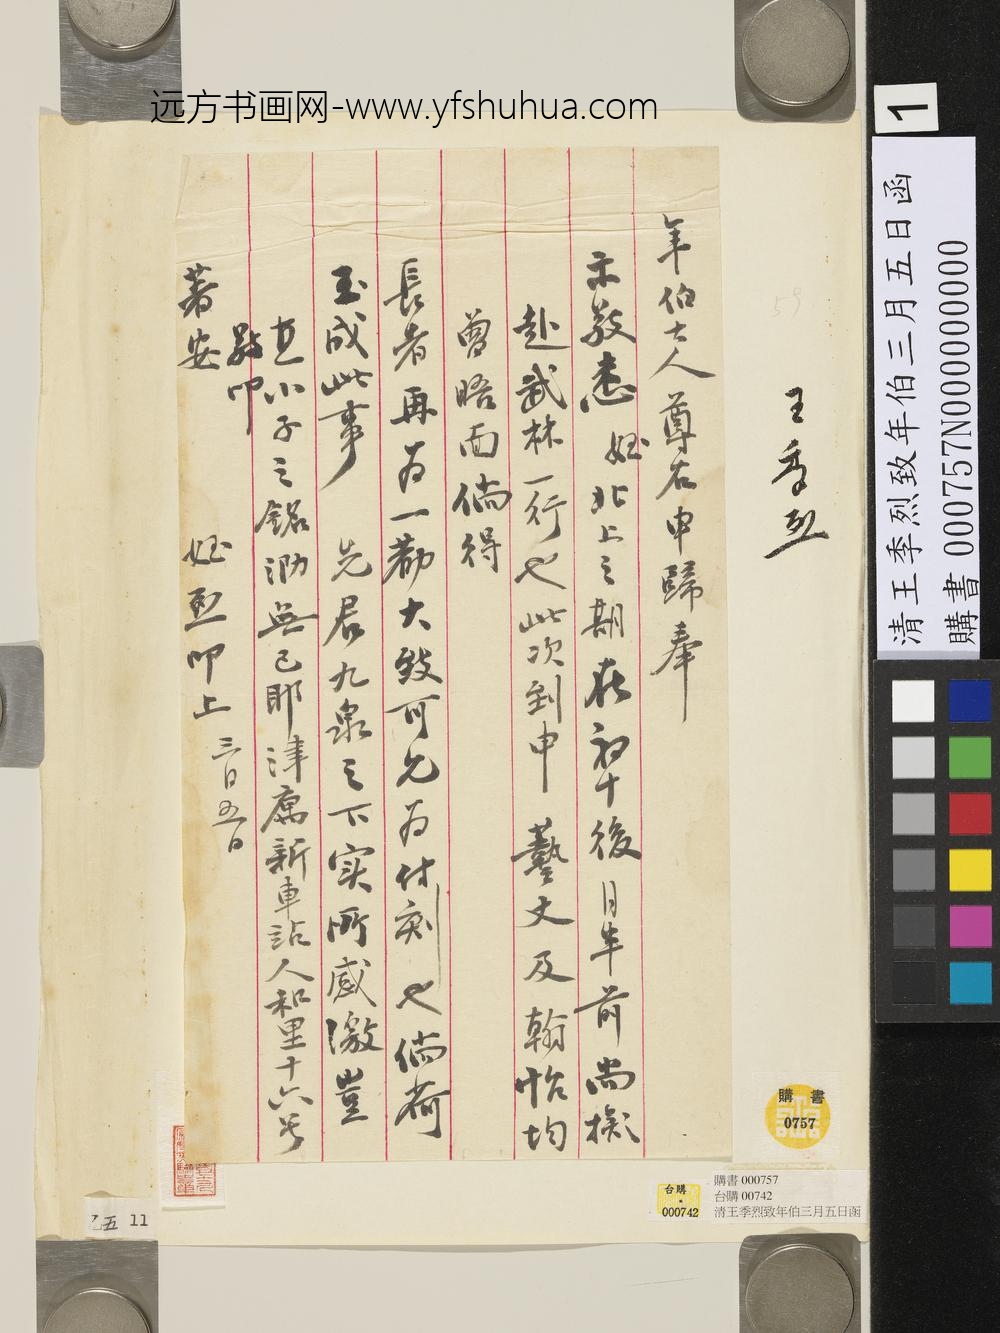 远方书画网-www.yfshuhua.com
1
清王季烈致年伯三月五日函
購書 000757N000000000
王季烈
年伯大人尊右申歸奉
示敬悉 姪北上之期在初十後月半前尚擬
赴武林一行也此次到申 藝文及翰怡均
曾晤面倘得
長者再為一勸大致可允為付刻也倘荷
玉成此事 先君九泉之下实所感激豈
直小子之銘泐無已耶津寓新車站人和里十六号
敬叩
著安 姪烈叩上 三月五日
購書
0757
台購
000742
購書 000757
台購 00742
清王季烈致年伯三月五日函
乙五 11